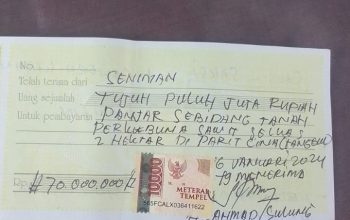 No.
Telah terima dari SENIMAN
Uang sejumlah TUJUH PULUH JUTA RUPIAH
Untuk pembayaran PANJAR SEBIDANG TANAH
PERKEBUNA SAWIT SELUAS
2 HEKTAR DI PARIT CINA
6 JANUARI 2024
yg MENERIMA
Rp. # 70.000.000
10000
METERAI
TEMPEL
565FCALX036411622
AHMAD